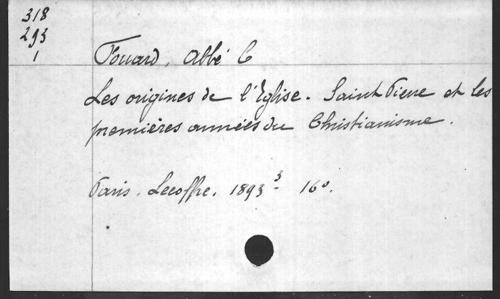 318
293
1
Fouard, Abbé C
Les origines de l'Eglise. Saint Pierre et les
premières années du Christianisme.
Paris. Lecoffre. 1893 3 16º.